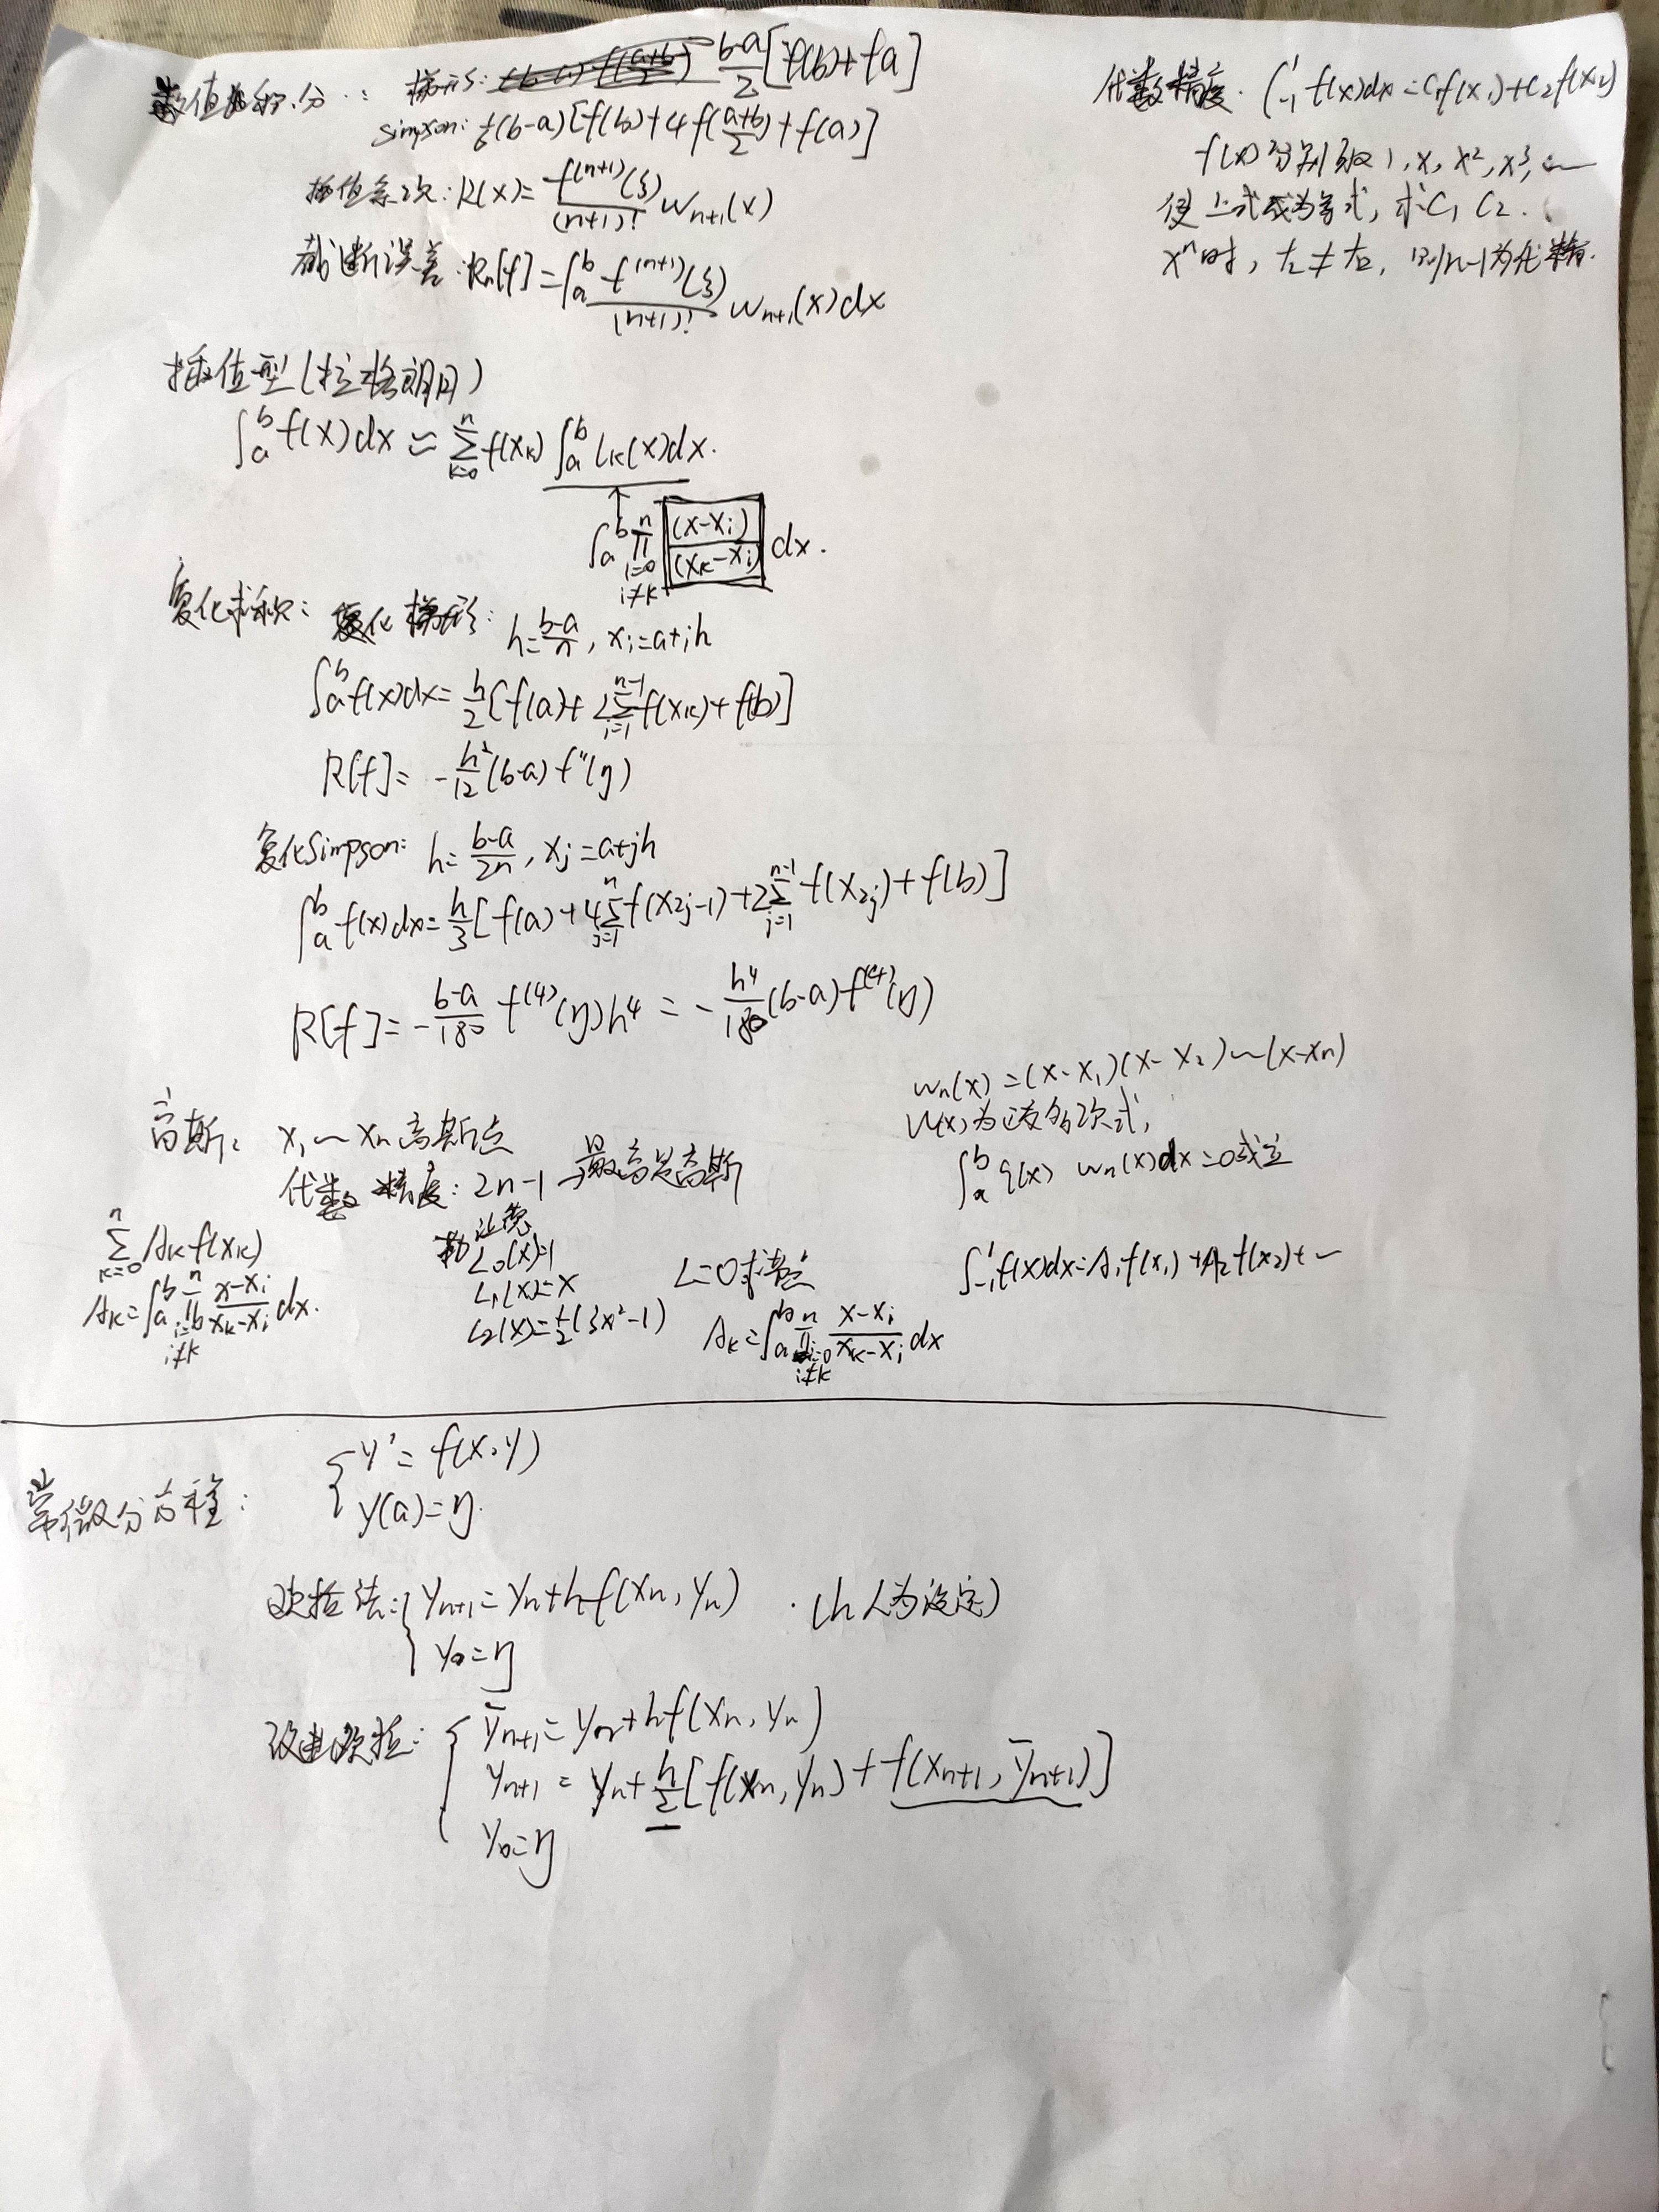 数值积分: 梯形: b-a/2 [f(b)+fa]
Simpson: 1/6(b-a)[f(b)+4f(a+b/2)+f(a)]
插值余项: R(x)= f^(n+1)(ξ)/(n+1)! w_n+1(x)
截断误差: R_n[f]=∫_a^b f^(n+1)(ξ)/(n+1)! w_n+1(x)dx
代数精度. ∫_-1^1 f(x)dx=C_1f(x_1)+C_2f(x_2)
f(x)分别取1,x,x²,x³,~
使上式成为等式,求C_1 C_2.
x^n时,左≠右,则n-1为代精.
插值型(拉格朗日)
∫_a^b f(x)dx ≈ Σ_{k=0}^n f(x_k) ∫_a^b l_k(x)dx.
↑
∫_a^b Π_{i=0 i≠k}^n (x-x_i)/(x_k-x_i) dx.
复化求积: 复化梯形: h=b-a/n, x_i=a+ih
∫_a^b f(x)dx= h/2[f(a)+2Σ_{i=1}^{n-1} f(x_k)+f(b)]
R[f]= -h²/12(b-a)f''(η)
复化Simpson: h= b-a/2n, x_j=a+jh
∫_a^b f(x)dx= h/3[f(a)+4Σ_{j=1}^n f(x_2j-1)+2Σ_{j=1}^{n-1} f(x_2j)+f(b)]
R[f]= -b-a/180 f^(4)(η)h⁴ = -h⁴/180(b-a)f^(4)(η)
高斯: x_1~x_n高斯点
代数精度: 2n-1→最高是高斯
w_n(x)=(x-x_1)(x-x_2)~(x-x_n)
W(x)为正交多项式,
∫_a^b q(x) w_n(x)dx=0成立
Σ_{k=0}^n A_kf(x_k)
A_k=∫_a^b Π_{i=b i≠k}^n x-x_i/x_k-x_i dx.
勒让德
L_0(x)=1
L_1(x)=x
L_2(x)=1/2(3x²-1)
L=0求零点
A_k=∫_a^b Π_{i=0 i≠k}^n x-x_i/x_k-x_i dx
∫_-1^1 f(x)dx=A_1f(x_1)+A_2f(x_2)+~
常微分方程: { y'=f(x,y)
y(a)=η.
欧拉法: { y_n+1=y_n+hf(x_n,y_n) .(h人为设定)
y_0=η
改进欧拉: { ȳ_n+1=y_n+hf(x_n,y_n)
y_n+1=y_n+h/2[f(x_n,y_n)+f(x_n+1,ȳ_n+1)]
y_0=η